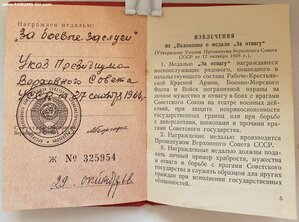 FORUMS-SU.COM
Награжден медалью:
"За боевые заслуги"
Указ Президиума
Верховного Совета
от 27 октября 196
Ж № 325954
29 октября
ИЗВЛЕЧЕНИЯ
из „Положения о медали „За отвагу"
(Утверждено Указом Президиума Верховного Совета
СССР от 17 октября 1938 г.)
1. Медалью „За отвагу" награждаются
военнослужащие рядового, командного и
начальствующего состава Рабоче-Крестьян-
ской Красной Армии, Военно-Морского
Флота и Войск пограничной охраны за
личное мужество и отвагу в боях с врагами
Советского Союза на театре военных дей-
ствий, при защите неприкосновенности
государственных границ или при борьбе
с диверсантами, шпионами и прочими вра-
гами Советского государства.
2. Награждение медалью производится
Президиумом Верховного Совета СССР.
3. Награжденные медалью должны пода-
вать личный пример храбрости, мужества
и отваги в борьбе с врагами Советского
государства и служить образцом для других
граждан
5